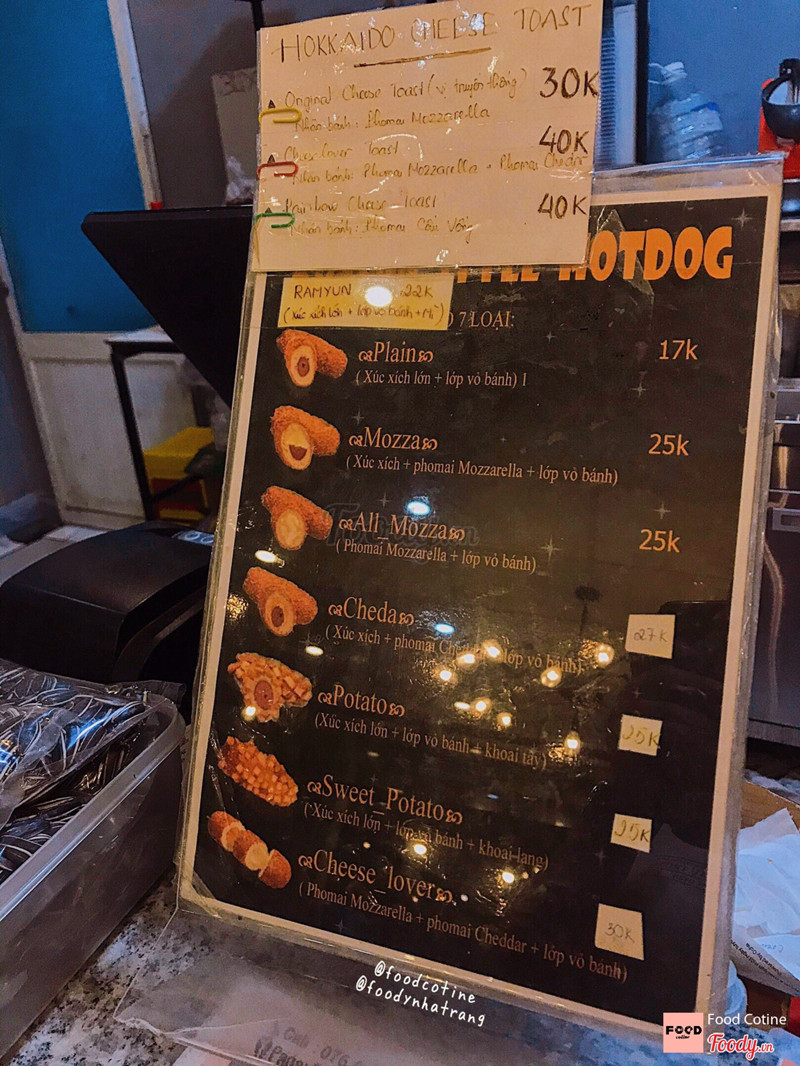 HOKKAIDO CHEESE TOAST
Original Cheese Toast (vị truyền thống) 30K
Nhân bánh: Phomai Mozzarella
Cheeselover Toast 40K
Nhân bánh: Phomai Mozzarella + Phomai Chedar
Rainbow Cheese Toast 40K
Nhân bánh: Phomai Cầu Vồng
HOTDOG
RAMYUN 22K
(Xúc xích lớn + lớp vỏ bánh + Mì)
7 LOẠI:
Plain 17k
( Xúc xích lớn + lớp vỏ bánh) 1
Mozza 25k
( Xúc xích + phomai Mozzarella + lớp vỏ bánh)
All_Mozza 25k
( Phomai Mozzarella + lớp vỏ bánh)
Cheda 27K
( Xúc xích + phomai lớp vỏ bánh)
Potato 25K
(Xúc xích lớn + lớp vỏ bánh + khoai tây)
Sweet_Potato 25K
(Xúc xích lớn + lớp vỏ bánh + khoai lang)
Cheese_lover 30K
( Phomai Mozzarella + phomai Cheddar + lớp vỏ bánh)
@foodcotine
@foodynhatrang
FOOD cotine
Food Cotine
Foody.vn